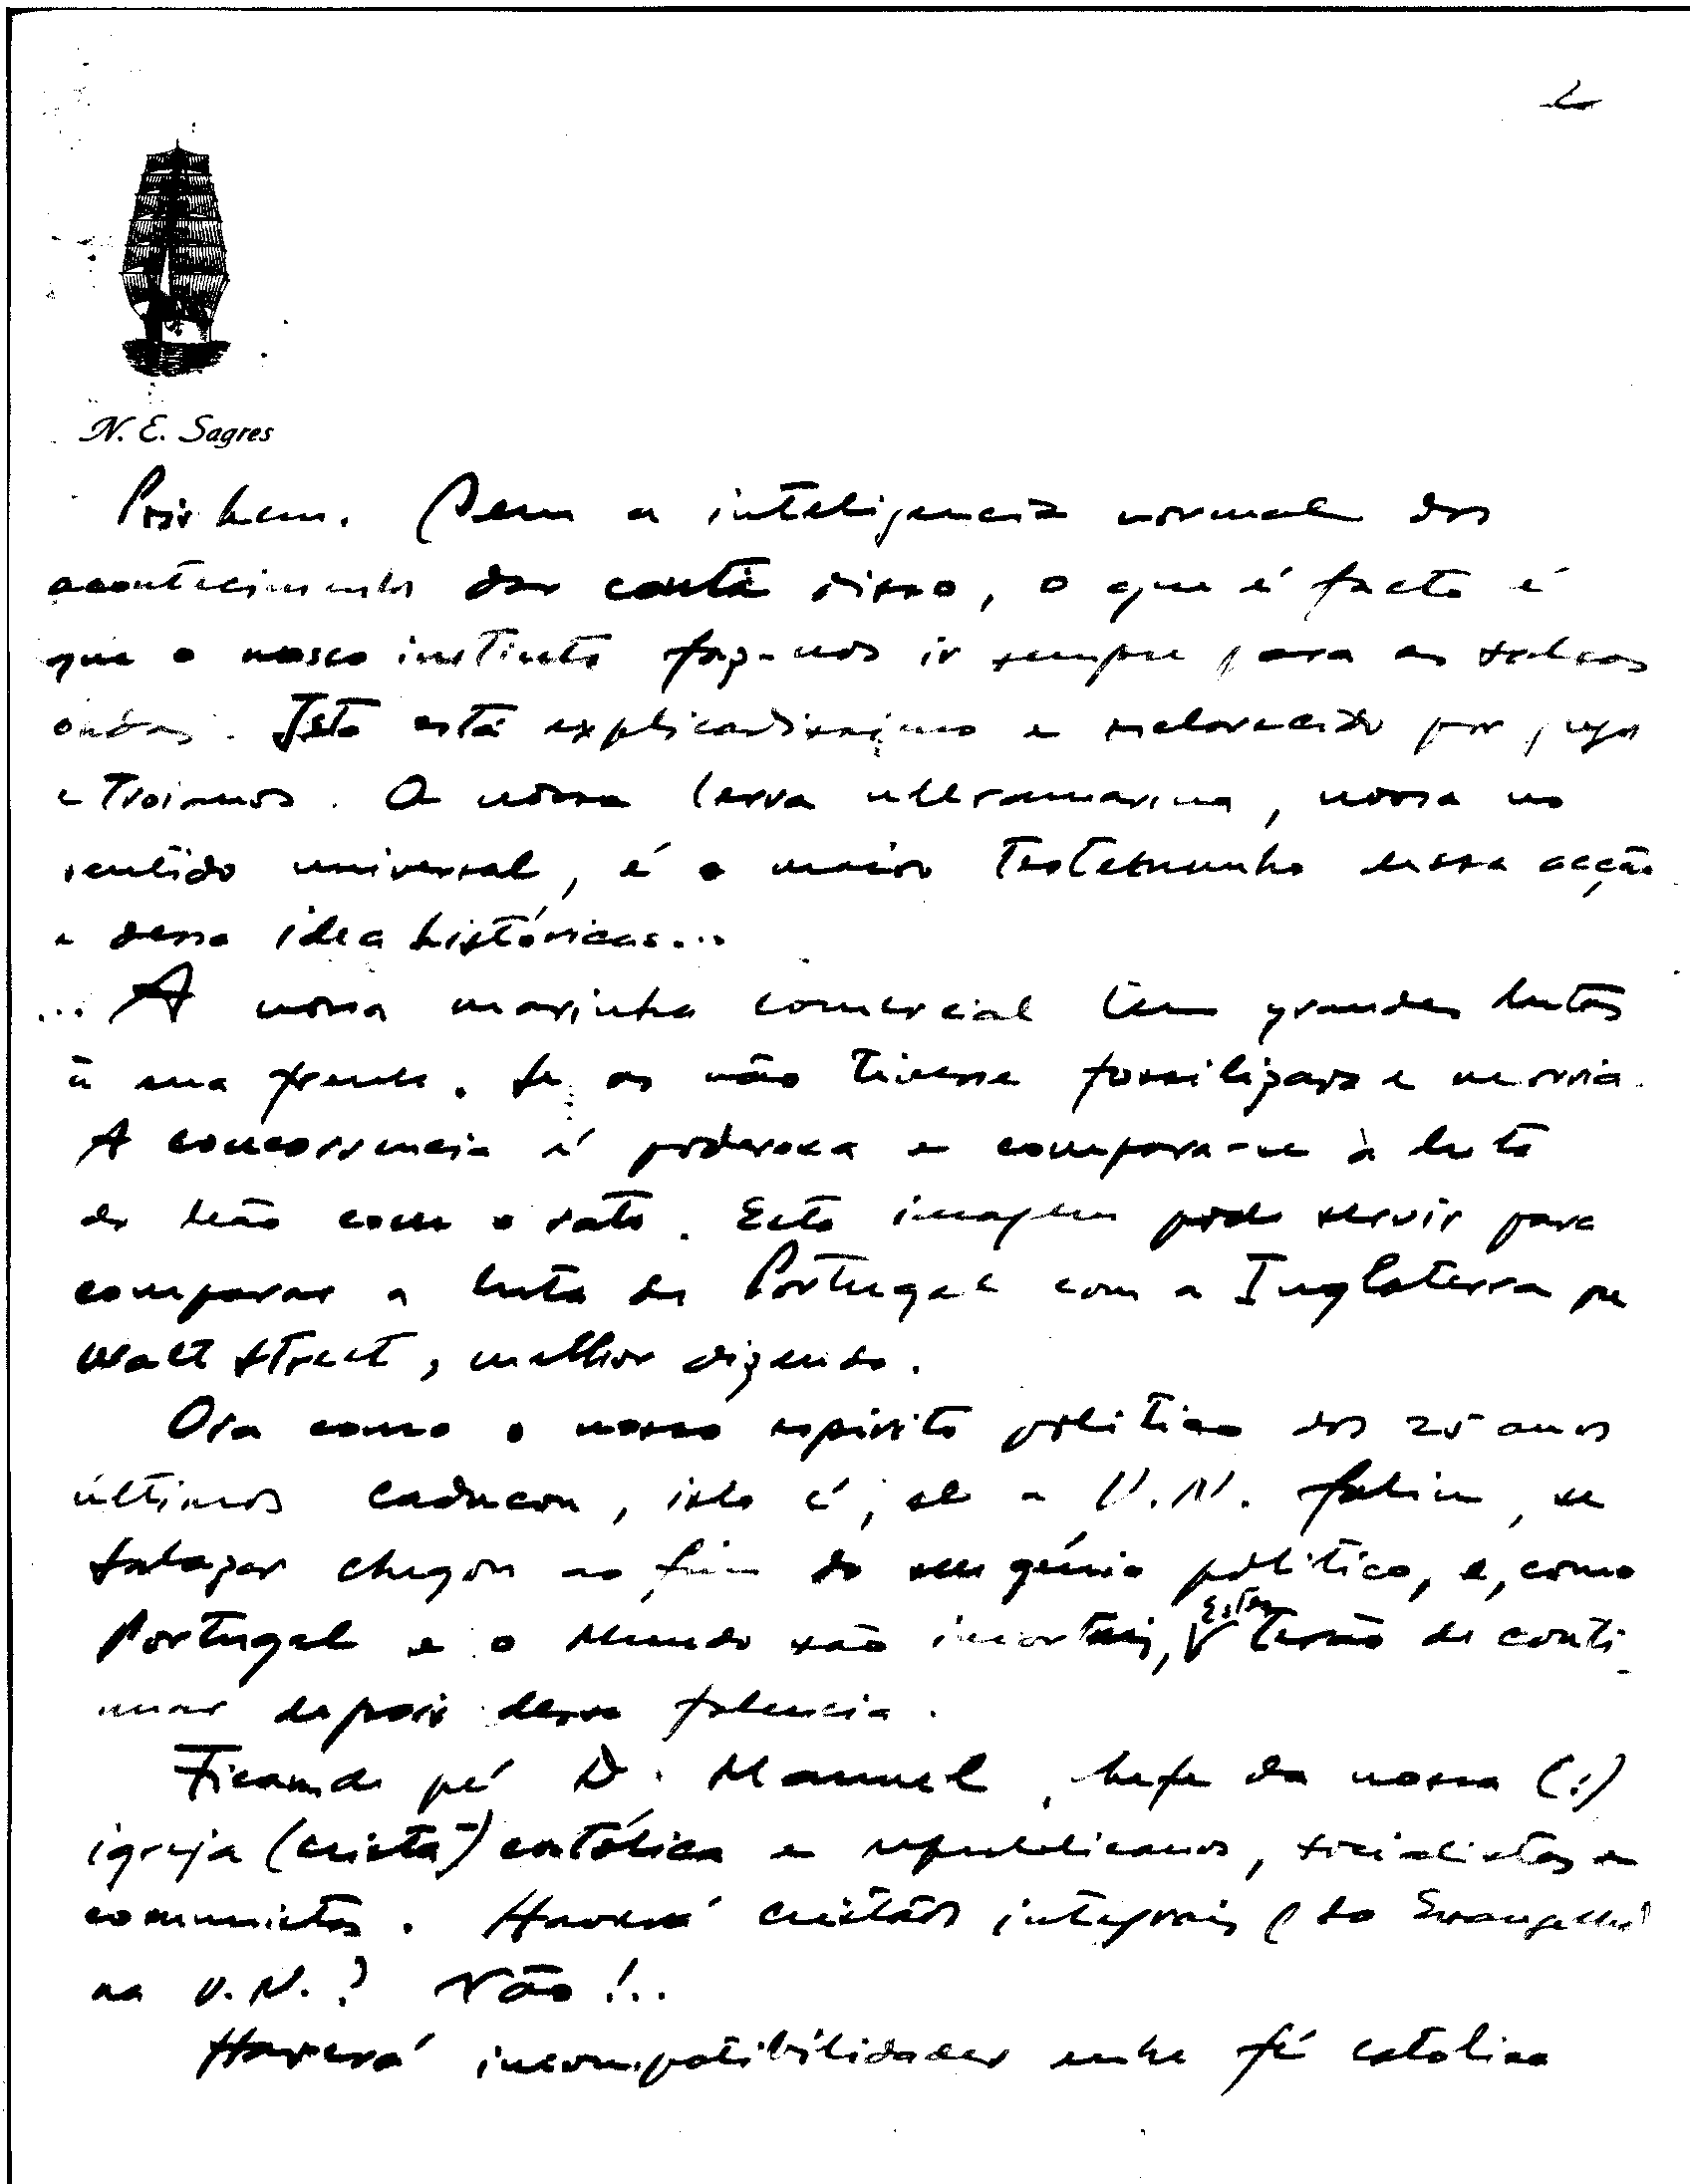 2
N. E. Sagres
Pois bem. Sem a inteligencia normal dos
acontecimentos dar conta disso, o que é facto é
que o nosso instinto faz-nos ir sempre para as salsas
ondas. Isto está explicadissimo e esclarecido por
e Troianos. A nossa terra ultramarina, nossa no
sentido universal, é o maior testemunho dessa acção
e dessa idea históricas...
... A nossa marinha comercial tem grandes lutas
à sua frente. Se as não tivesse fossilizava e morria.
A concorrencia é poderosa e compara-se à luta
do leão com o rato. Esta imagem pode servir para
comparar a luta de Portugal com a Inglaterra ou
Walt Street, melhor dizendo.
Ora como o nosso espirito politico dos 25 anos
últimos caducou, isto é, se a U.N. faliu, se
Salazar chegou ao fim do seu génio politico, e, como
Portugal e o Mundo são imortais, estes terão de conti
nuar depois dessa falencia.
Ficam de pé D. Manuel, chefe da nossa (!)
igreja (cristã) católica e republicanos, socialistas e
comunistas. Haverá cristãos integrais (do Evangelho)
na U.N.? Não!..
Haverá incompatibilidades entre fé catolica